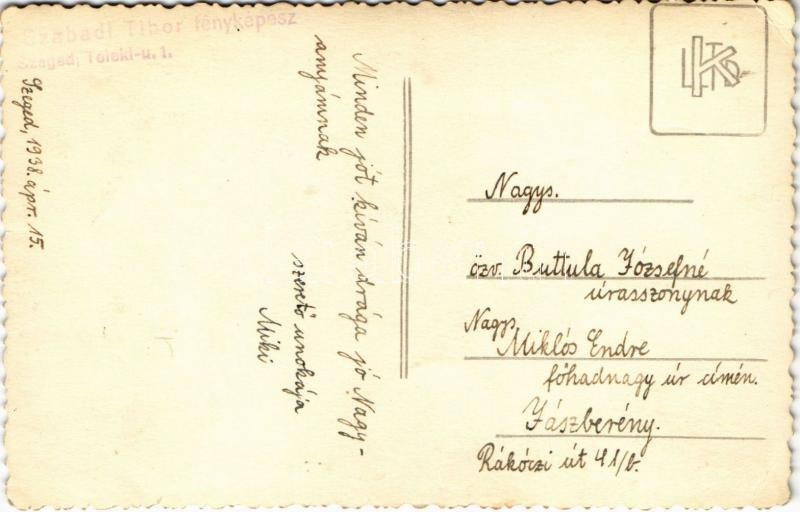 Szabadi Tibor fényképész
Szeged, Teleki-u. 1.
Szeged, 1938. ápr. 15.
Minden jót kíván drága jó Nagy-
anyámnak
szerető unokája
Miki
Nagys.
özv. Buttula Józsefné
úrasszonynak
Nagys.
Miklós Endre
főhadnagy úr címén.
Jászberény.
Rákóczi út 41/b.